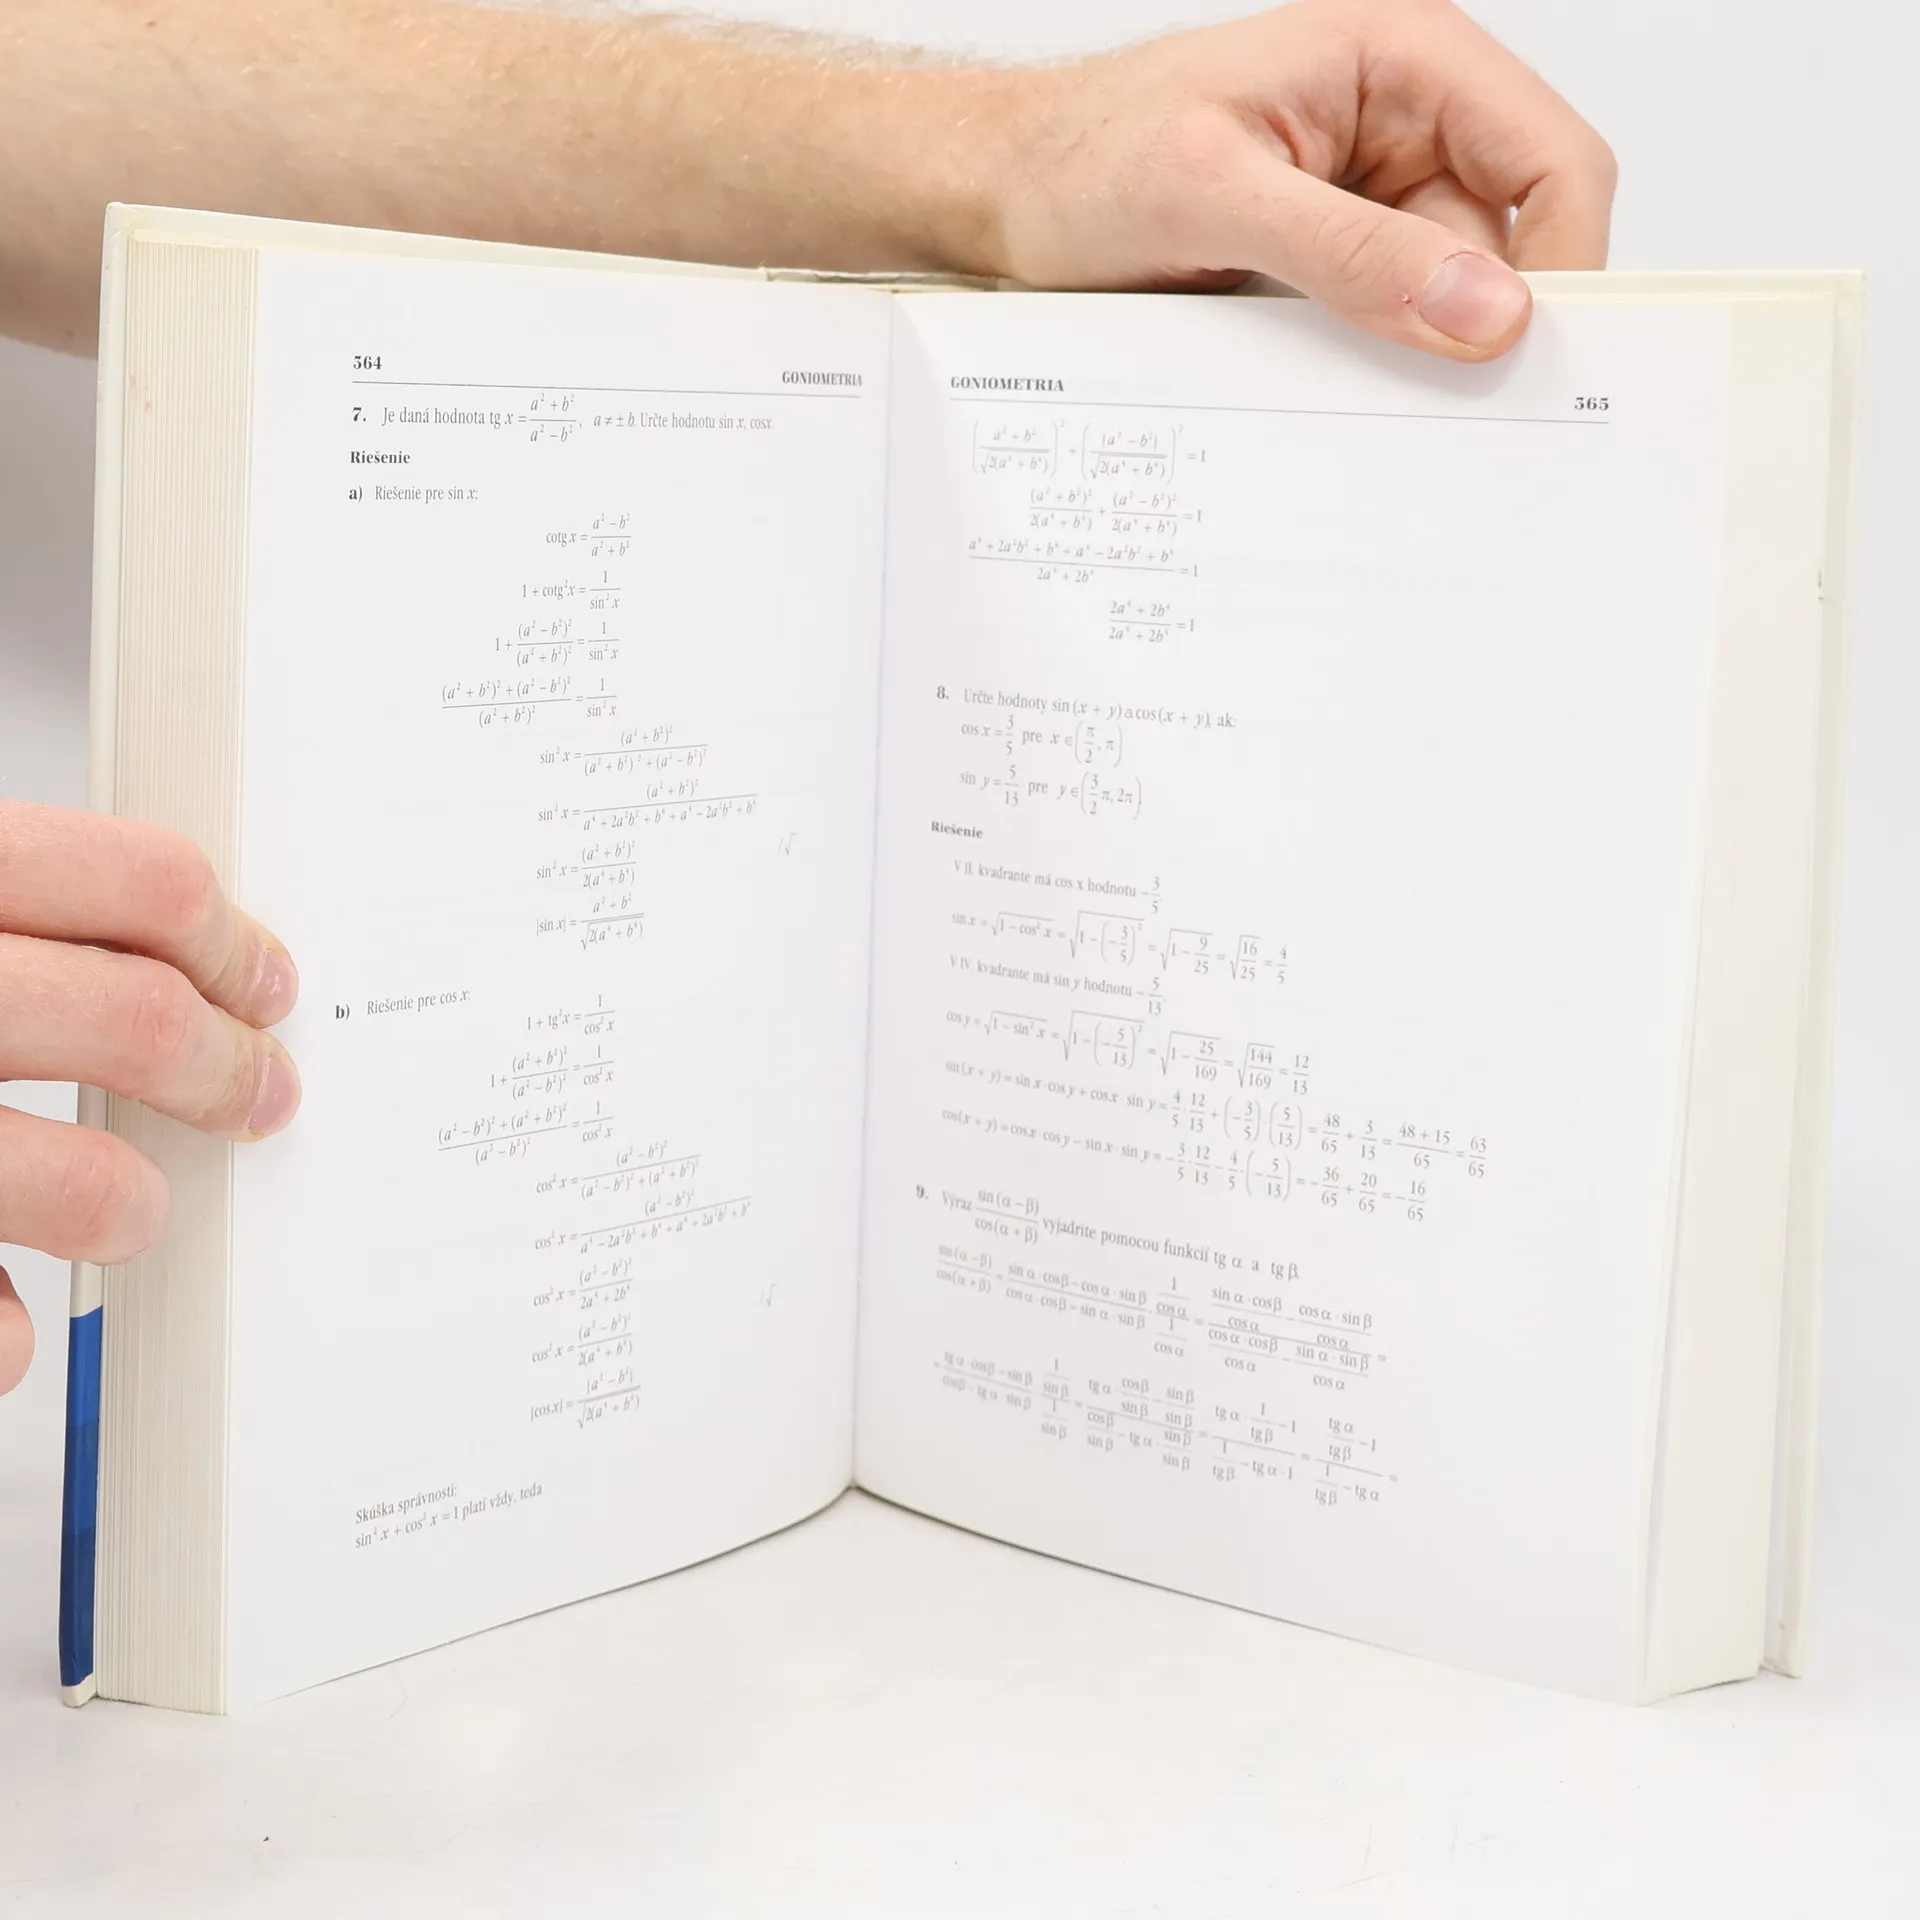 364
GONIOMETRIA
7. Je daná hodnota tg x = (a² + b²)/(a² − b²), a ≠ ± b. Určte hodnotu sin x, cos x.
Riešenie
a) Riešenie pre sin x:
cotg x = (a² − b²)/(a² + b²)
1 + cotg²x = 1/sin² x
1 + (a² − b²)²/(a² + b²)² = 1/sin² x
((a² + b²)² + (a² − b²)²)/(a² + b²)² = 1/sin² x
sin² x = (a² + b²)²/((a² + b²)² + (a² − b²)²)
sin² x = (a² + b²)²/(a⁴ + 2a²b² + b⁴ + a⁴ − 2a²b² + b⁴)
sin² x = (a² + b²)²/(2(a⁴ + b⁴))
|sin x| = (a² + b²)/√(2(a⁴ + b⁴))
b) Riešenie pre cos x:
1 + tg²x = 1/cos² x
1 + (a² + b²)²/(a² − b²)² = 1/cos² x
((a² − b²)² + (a² + b²)²)/(a² − b²)² = 1/cos² x
cos² x = (a² − b²)²/((a² − b²)² + (a² + b²)²)
cos² x = (a² − b²)²/(a⁴ − 2a²b² + b⁴ + a⁴ + 2a²b² + b⁴)
cos² x = (a² − b²)²/(2a⁴ + 2b⁴)
cos² x = (a² − b²)²/(2(a⁴ + b⁴))
|cos x| = |a² − b²|/√(2(a⁴ + b⁴))
Skúška správnosti:
sin² x + cos² x = 1 platí vždy, teda
GONIOMETRIA
365
((a² + b²)/√(2(a⁴ + b⁴)))² + (|a² − b²|/√(2(a⁴ + b⁴)))² = 1
(a² + b²)²/(2(a⁴ + b⁴)) + (a² − b²)²/(2(a⁴ + b⁴)) = 1
(a⁴ + 2a²b² + b⁴ + a⁴ − 2a²b² + b⁴)/(2a⁴ + 2b⁴) = 1
(2a⁴ + 2b⁴)/(2a⁴ + 2b⁴) = 1
8. Určte hodnoty sin (x + y) a cos (x + y), ak:
cos x = 3/5 pre x ∈ (π/2, π)
sin y = 5/13 pre y ∈ (3/2 π, 2π)
Riešenie
V II. kvadrante má cos x hodnotu −3/5.
sin x = √(1 − cos² x) = √(1 − (−3/5)²) = √(1 − 9/25) = √(16/25) = 4/5
V IV. kvadrante má sin y hodnotu −5/13.
cos y = √(1 − sin² x) = √(1 − (−5/13)²) = √(1 − 25/169) = √(144/169) = 12/13
sin (x + y) = sin x · cos y + cos x · sin y = 4/5 · 12/13 + (−3/5) · (5/13) = 48/65 + 3/13 = (48 + 15)/65 = 63/65
cos (x + y) = cos x · cos y − sin x · sin y = −3/5 · 12/13 − 4/5 · (−5/13) = −36/65 + 20/65 = −16/65
9. Výraz sin (α − β)/cos (α + β) vyjadrite pomocou funkcií tg α a tg β.
sin (α − β)/cos (α + β) = (sin α · cos β − cos α · sin β)/(cos α · cos β − sin α · sin β) · (1/cos α)/(1/cos α) = ((sin α · cos β)/cos α − (cos α · sin β)/cos α)/((cos α · cos β)/cos α − (sin α · sin β)/cos α) =
= (tg α · cos β − sin β)/(cos β − tg α · sin β) · (1/sin β)/(1/sin β) = (tg α · cos β/sin β − sin β/sin β)/(cos β/sin β − tg α · sin β/sin β) = (tg α · 1/tg β − 1)/(1/tg β − tg α · 1) = (tg α/tg β − 1)/(1/tg β − tg α) =